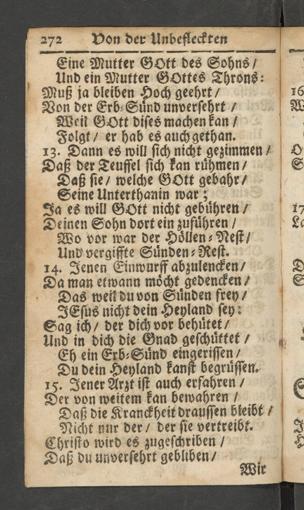 272 Von der Unbefleckten
Eine Mutter GOtt des Sohns/
Und ein Mutter GOttes Throns:
Muß ja bleiben Hoch geehrt/
Von der Erb-Sünd unversehrt/
Weil GOtt dises machen kan/
Folgt/ er hab es auch gethan.
13. Dann es will sich nicht gezimmen/
Daß der Teuffel sich kan rühmen/
Daß sie/ welche GOtt gebahr/
Seine Unterthanin war;
Ja es will GOtt nicht gebühren/
Deinen Sohn dort ein zuführen/
Wo vor war der Höllen-Nest/
Und vergiffte Sünden-Rest.
14. Jenen Einwurff abzulencken/
Da man etwann möcht gedencken/
Das weil du von Sünden frey/
JEsus nicht dein Heyland sey:
Sag ich/ der dich vor behütet/
Und in dich die Gnad geschüttet/
Eh ein Erb-Sünd eingerissen/
Du dein Heyland kanst begrüssen.
15. Jener Arzt ist auch erfahren/
Der von weitem kan bewahren/
Daß die Kranckheit draussen bleibt/
Nicht nur der/ der sie vertreibt.
Christo wird es zugeschriben/
Daß du unversehrt gebliben/
Wir